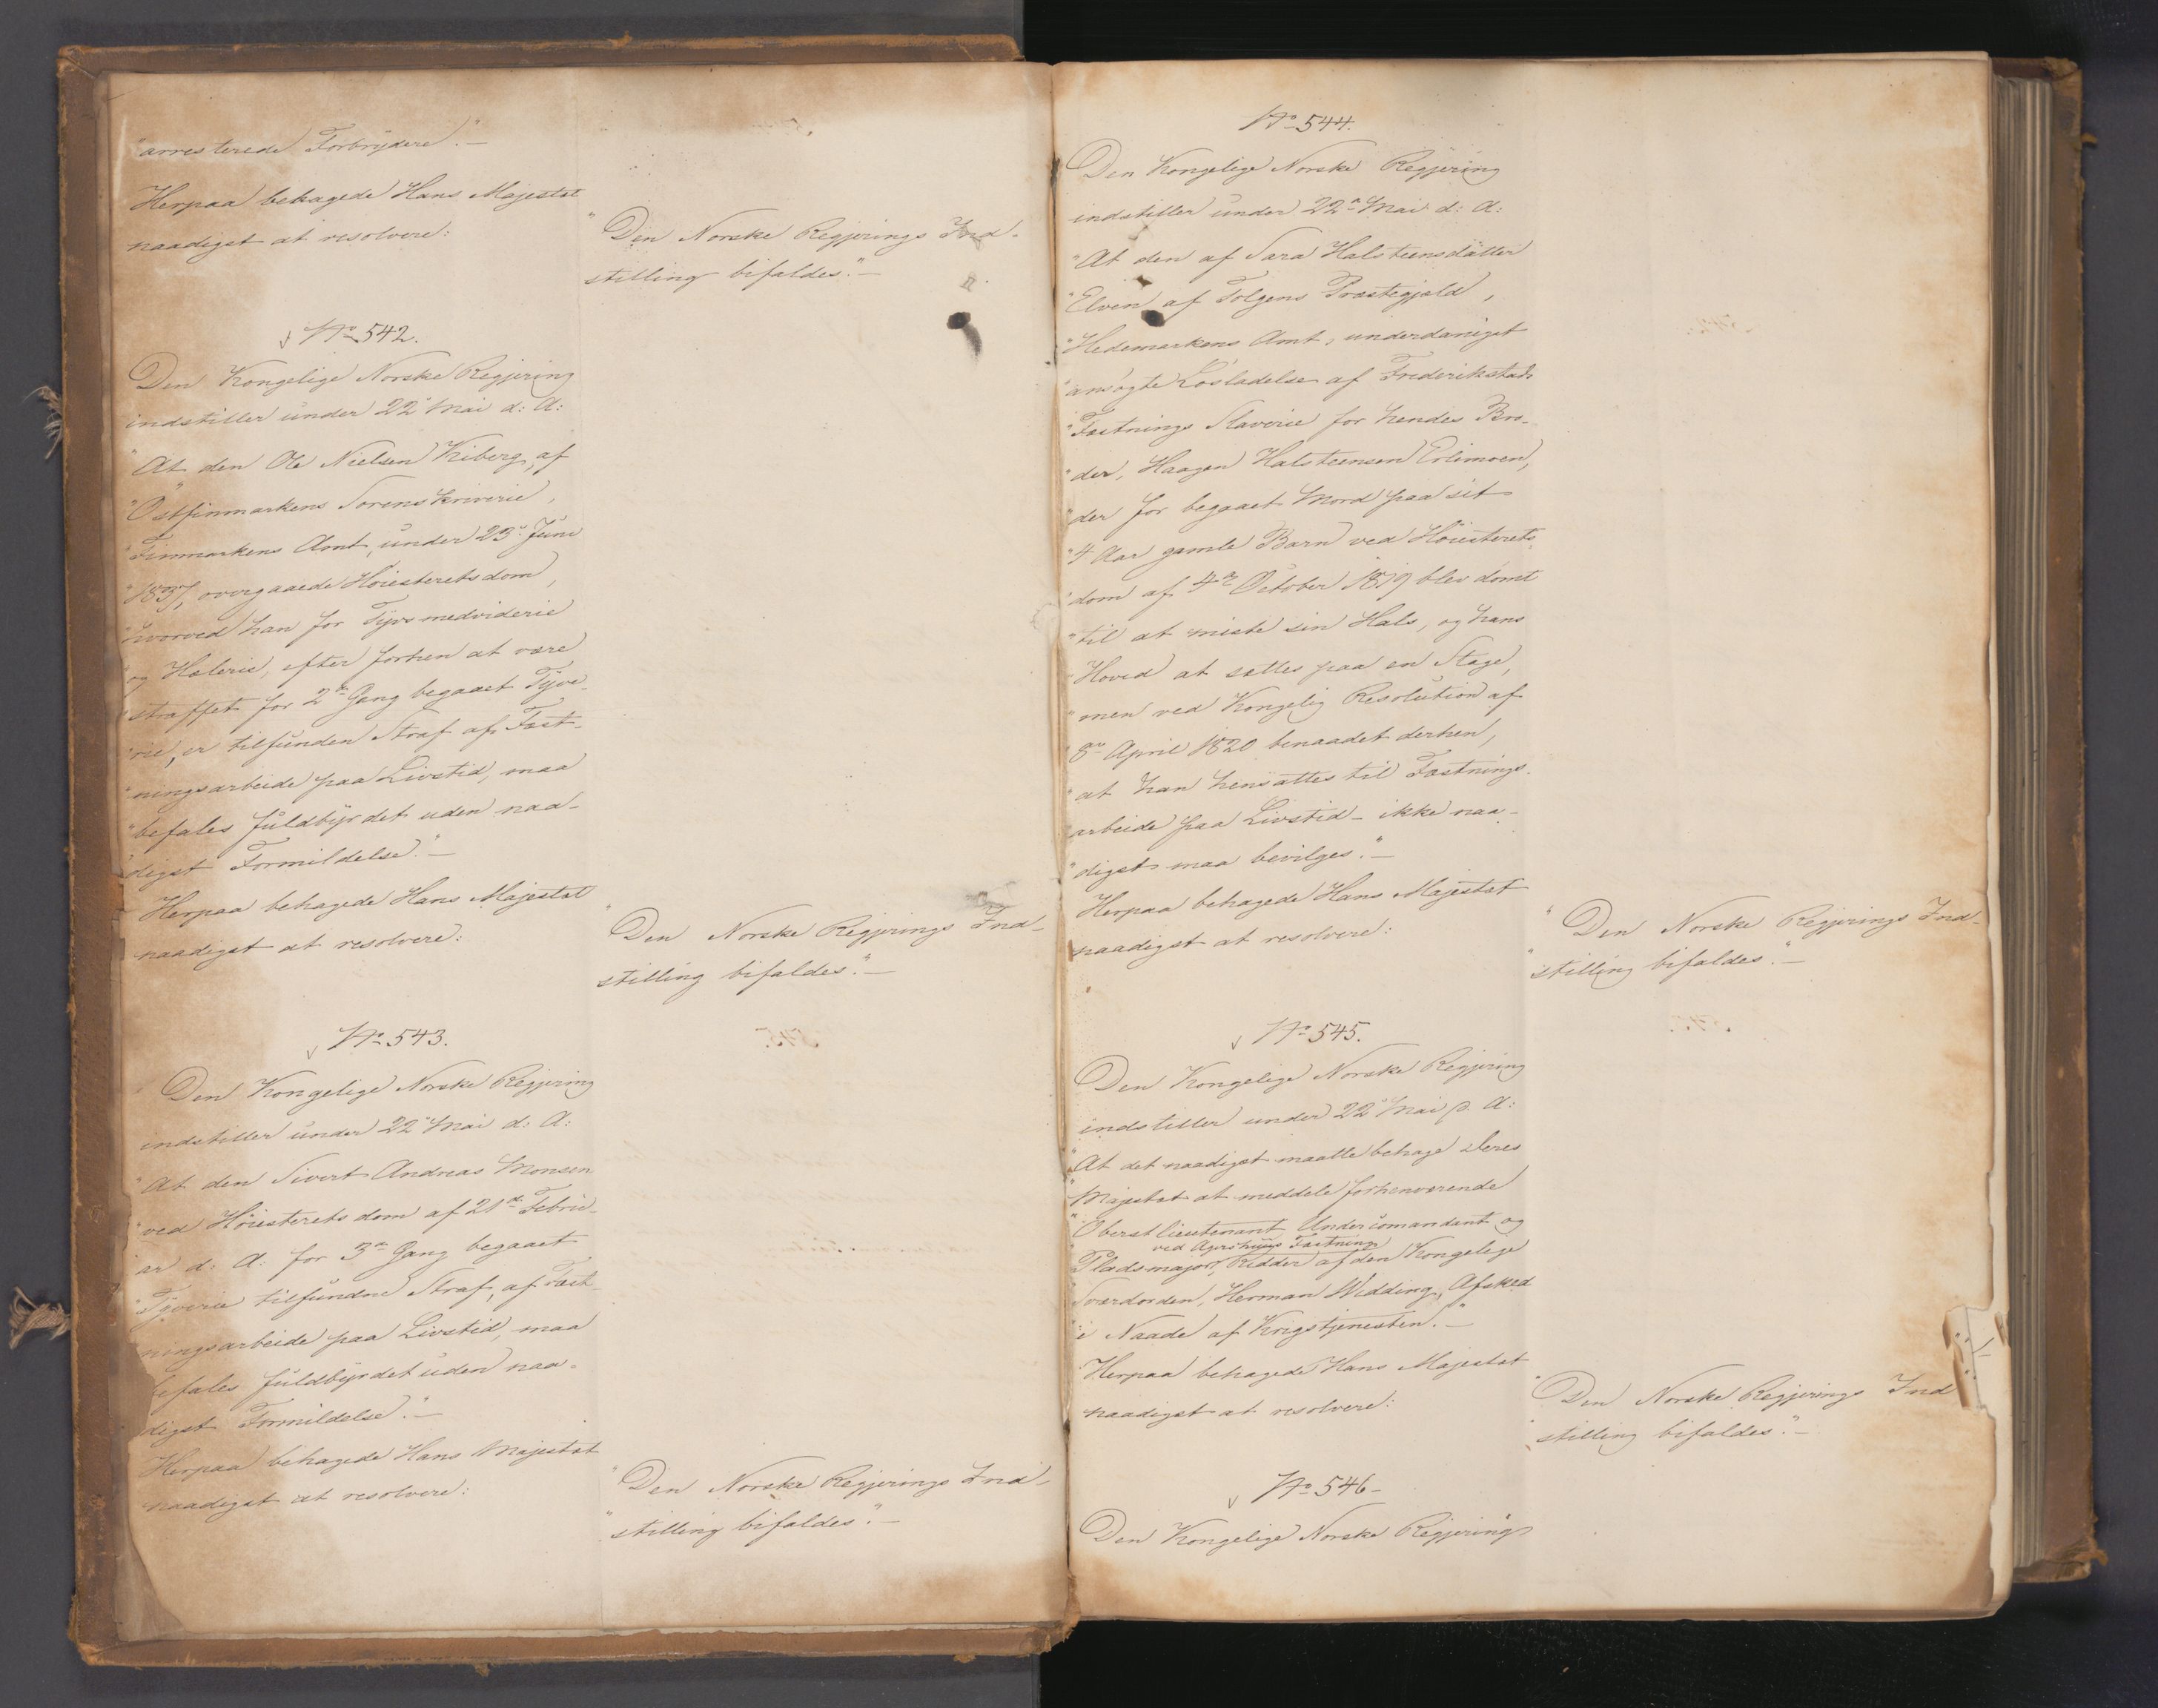 "arresterede Forbrydere."—
Herpaa behagede Hans Majestæt
naadigst at resolvere:
"Den Norske Regjerings Ind-
stilling bifaldes."—
No 542.
Den Kongelige Norske Regjering
indstiller under 22de Mai d: A:
"At den Ole Nielsen Kiberg, af
"Østfinmarkens Sorenskriverie,
"Finmarkens Amt, under 23de Juni
overgaaede Høiesteretsdom,
"hvorved han for Tyvsmedviderie
"og Hæleri, efter forhen at være
"straffet for 2den Gang begaaet Tyve-
"rie, er tilfunden Straf af Fæst-
"ningsarbeide paa Livstid, maa
"befales fuldbyrdet uden naa-
"digst Formildelse."—
Herpaa behagede Hans Majestæt
naadigst at resolvere:
"Den Norske Regjerings Ind-
stilling bifaldes."—
No 543.
Den Kongelige Norske Regjering
indstiller under 22de Mai d: A:
"At den Sivert Andreas Monsen
"ved Høiesterets dom af 21de Febru-
ar d: A: for 3die Gang begaaet
"Tyverie tilfundne Straf, af Fæst-
ningsarbeide paa Livstid, maa
befales fuldbyrdet uden naa-
digst Formildelse."—
Herpaa behagede Hans Majestæt
naadigst at resolvere:
"Den Norske Regjerings Ind-
"stilling bifaldes."—
No 544.
Den Kongelige Norske Regjering
indstiller under 22de Mai d: A:
"At den af Sara Halsteensdatter
"Elven af Tolgens Præstegjæld,
"Hedemarkens Amt, underdanigst
"ansøgte Løsladelse af Frederikstads
"Fæstnings Slaverie for hendes Bro-
"der, Haagen Halsteensen Erlimoen,
"der for begaaet Mord paa sit
"4 Aar gamle Barn ved Høiesterets-
"dom af 4de October 1819 blev dømt
"til at miste sin Hals, og hans
"Hoved at sættes paa en Stage,
"men ved Kongelig Resolution af
"8de April 1820 benaadet derhen,
"at han hensattes til Fæstnings-
"arbeide paa Livstid – ikke naa-
"digst maa bevilges."—
Herpaa behagede Hans Majestæt
naadigst at resolvere:
"Den Norske Regjerings Ind-
"stilling bifaldes."—
No 545.
Den Kongelige Norske Regjering
indstiller under 22de Mai d. A:
"At det naadigst maatte behage Deres
"Majestæt at meddele forhenværende
"Oberstlieutenant, Undercomandant og
ved Agershuus Fæstning
"Pladsmajor, Ridder af den Kongelige
"Sværdorden, Herman Wedding, Afsked
"i Naade af Krigstjenesten."—
Herpaa behagede Hans Majestæt
naadigst at resolvere:
"Den Norske Regjerings Ind-
"stilling bifaldes."—
No 546–
Den Kongelige Norske Regjering